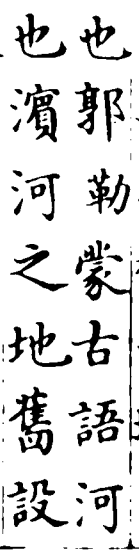 也郭勒蒙古語河
也濱河之地舊設